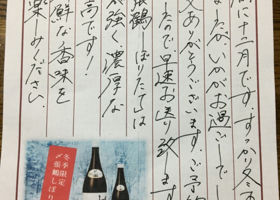 間に十一月です。すっかり冬の
なたが、いかがお過ごしで
文ありがとうございます。ご予約
たので、早速お送り致します
張鶴 しぼりたては
味強く濃厚な
高です！
鮮な香味を
楽しみください
冬季限定
〆張鶴しぼり